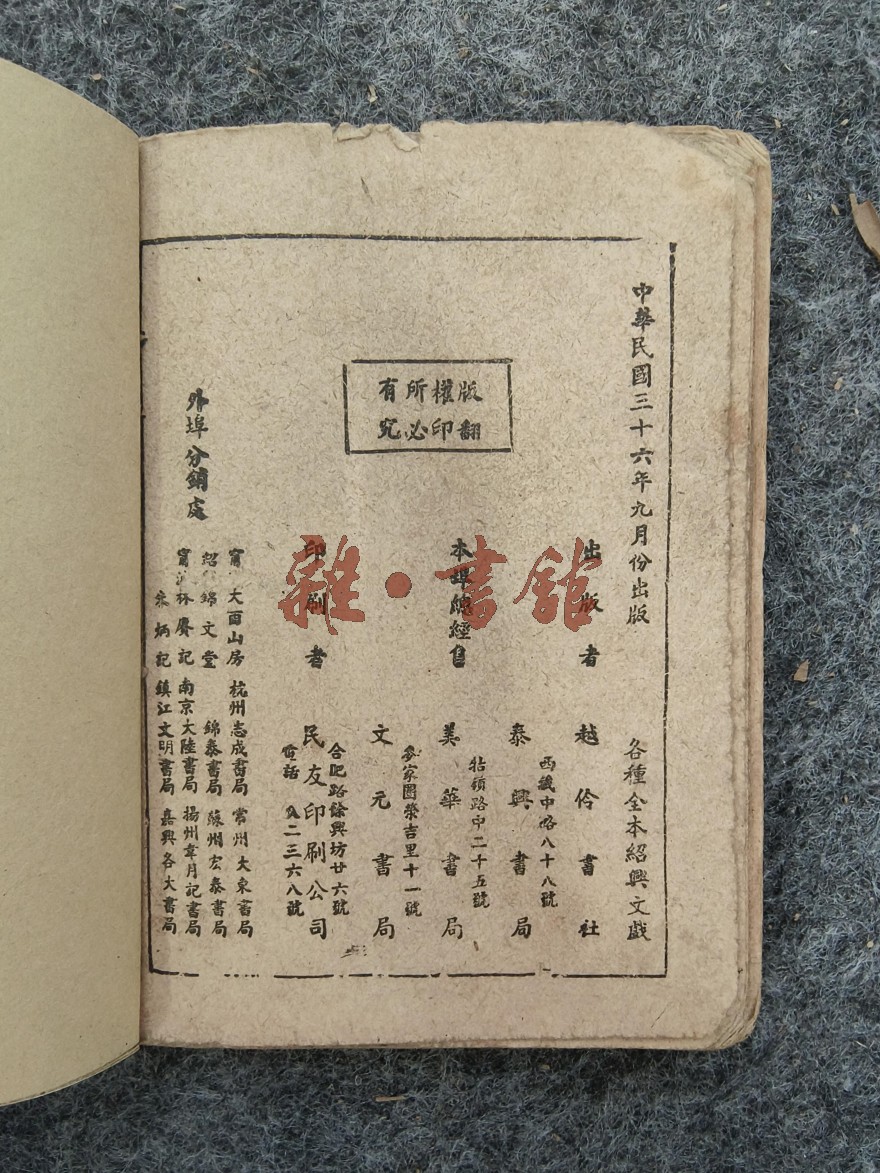 中華民國三十六年九月份出版
各種全本紹興文戲
出版者 越伶書社
西藏中路八十八號
泰興書局
本埠總經售
牯嶺路中二十五號
美華書局
參家園榮吉里十一號
文元書局
版權所有
翻印必究
合肥路餘興坊廿六號
印刷者 民友印刷公司
電話 八二三六八號
外埠分銷處
大酉山房 杭州志成書局 常州大東書局
錦文堂 錦泰書局 蘇州宏泰書局
林賡記 南京大陸書局 揚州韋月記書局
朱炳記 鎮江文明書局 嘉興各大書局
雜·書館